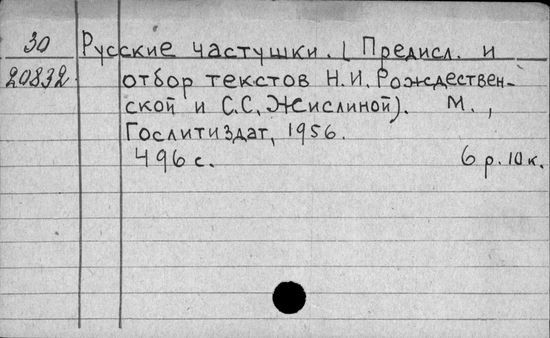 30 Русские частушки. (Предисл. и
20832 отбор текстов Н.И. Рождествен-
ской и С.С. Жислиной). М.,
Гослитиздат, 1956.
496 с. 6 р. 10 к.